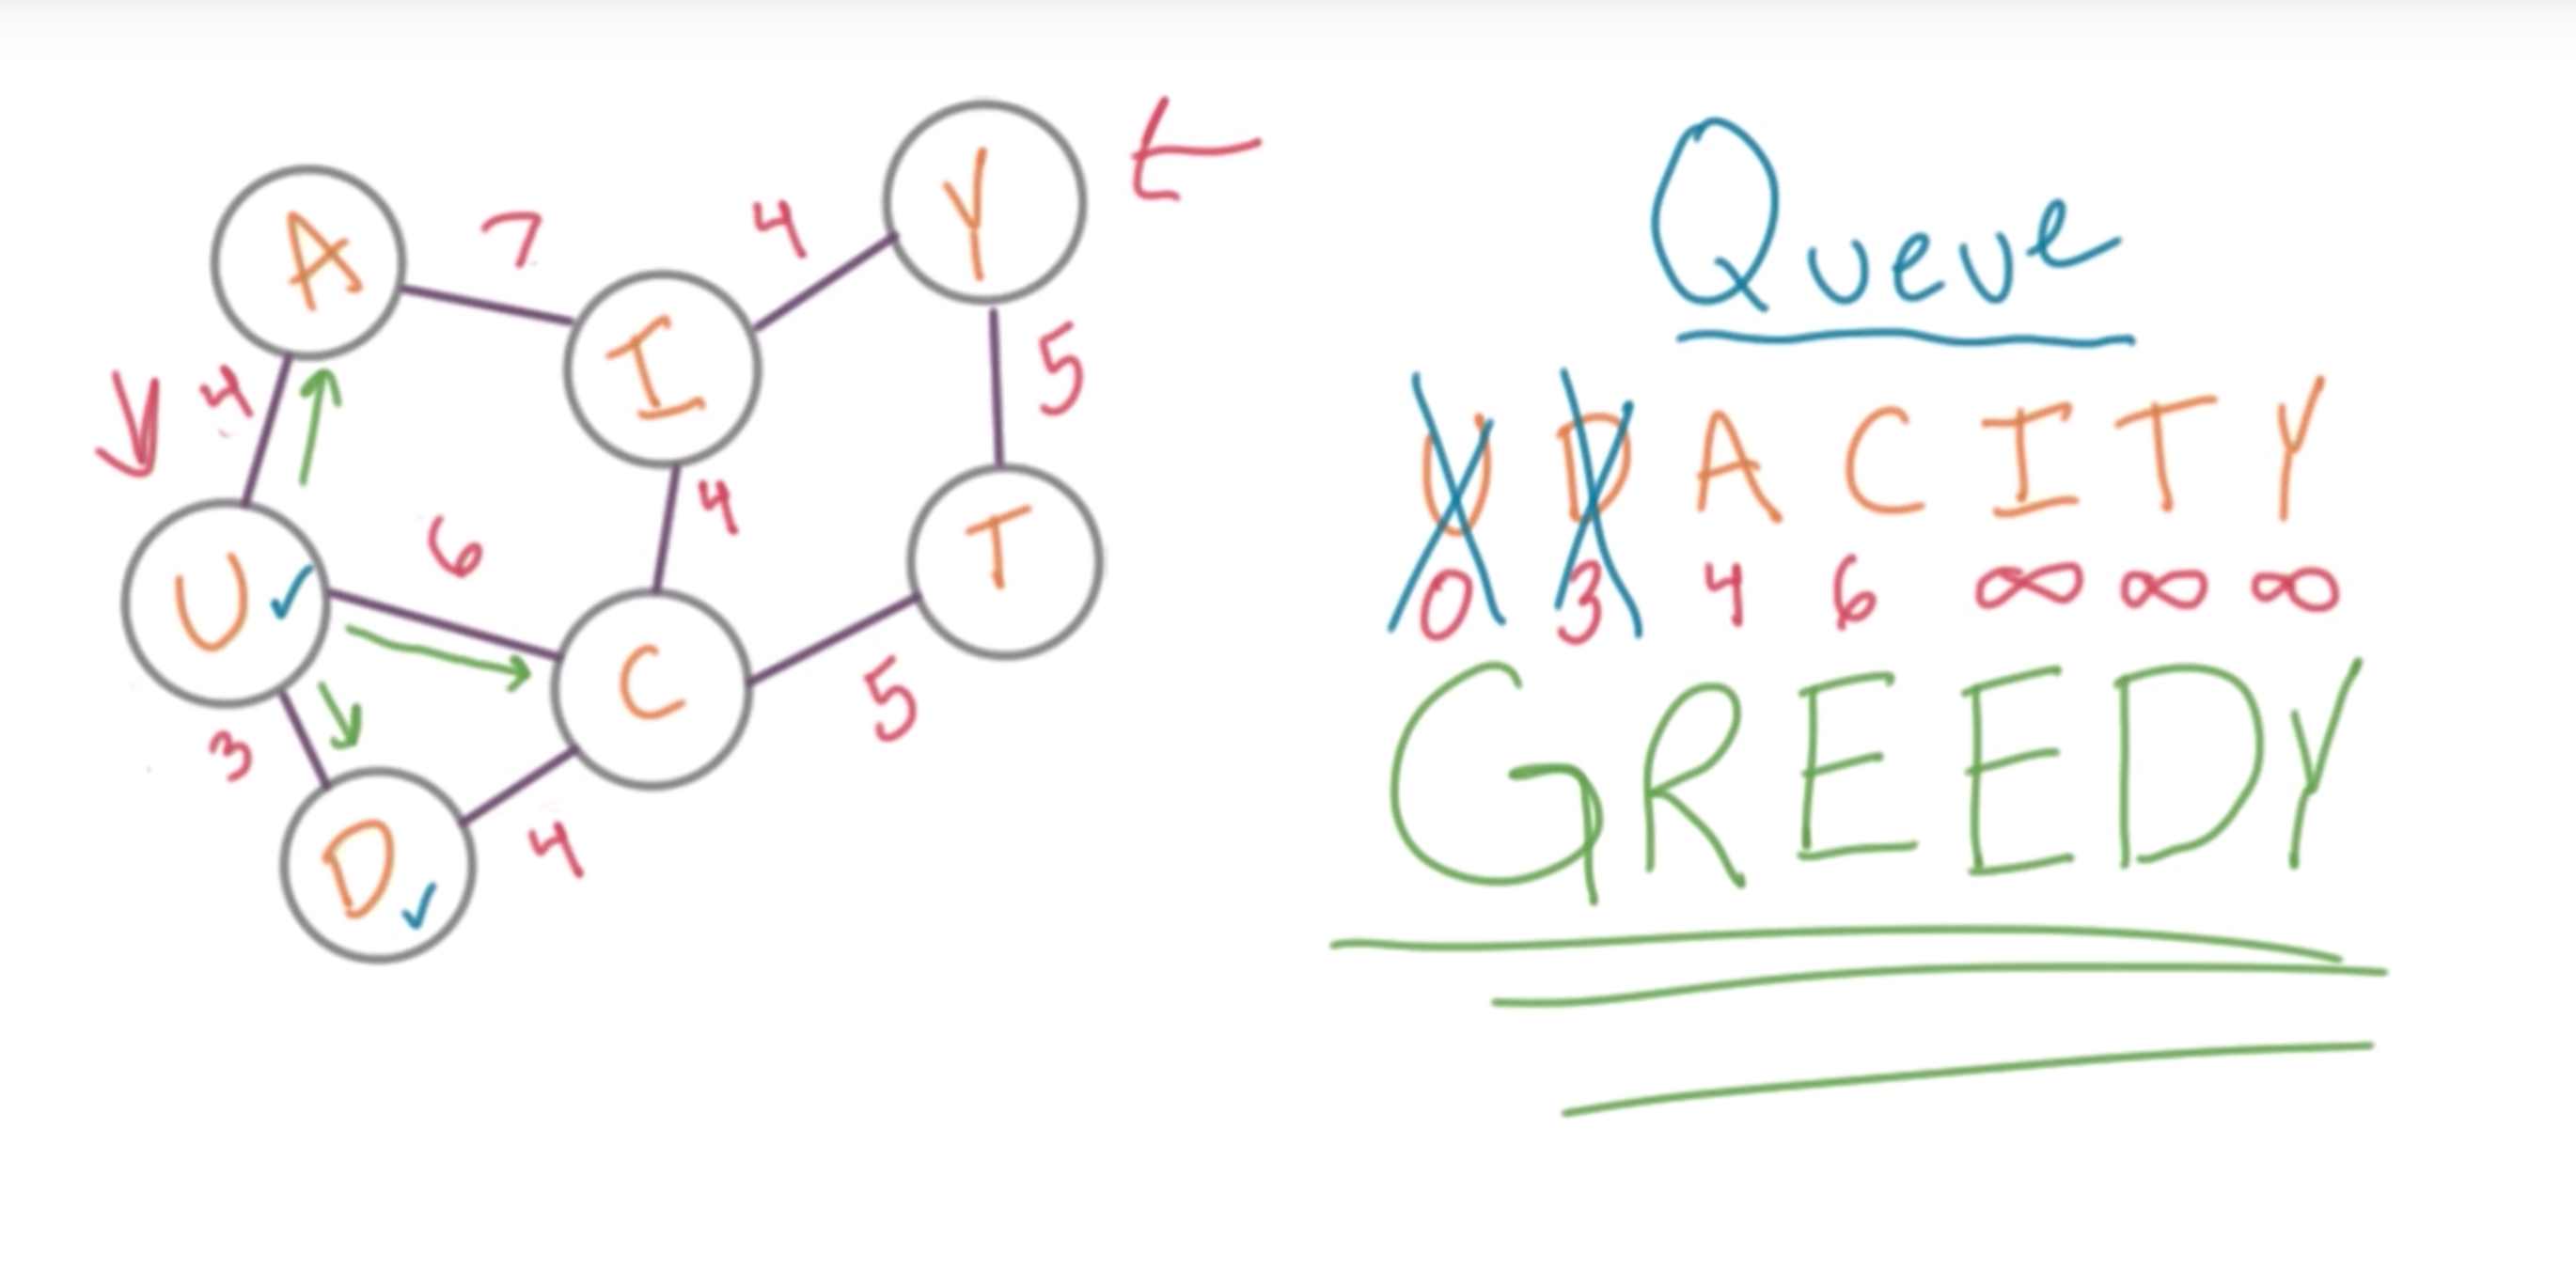 A 7 4 Y
4 I 5
U 6 4 T
C 5
3 D 4
Queue
U D A C I T Y
0 3 4 6 ∞ ∞ ∞
GREEDY